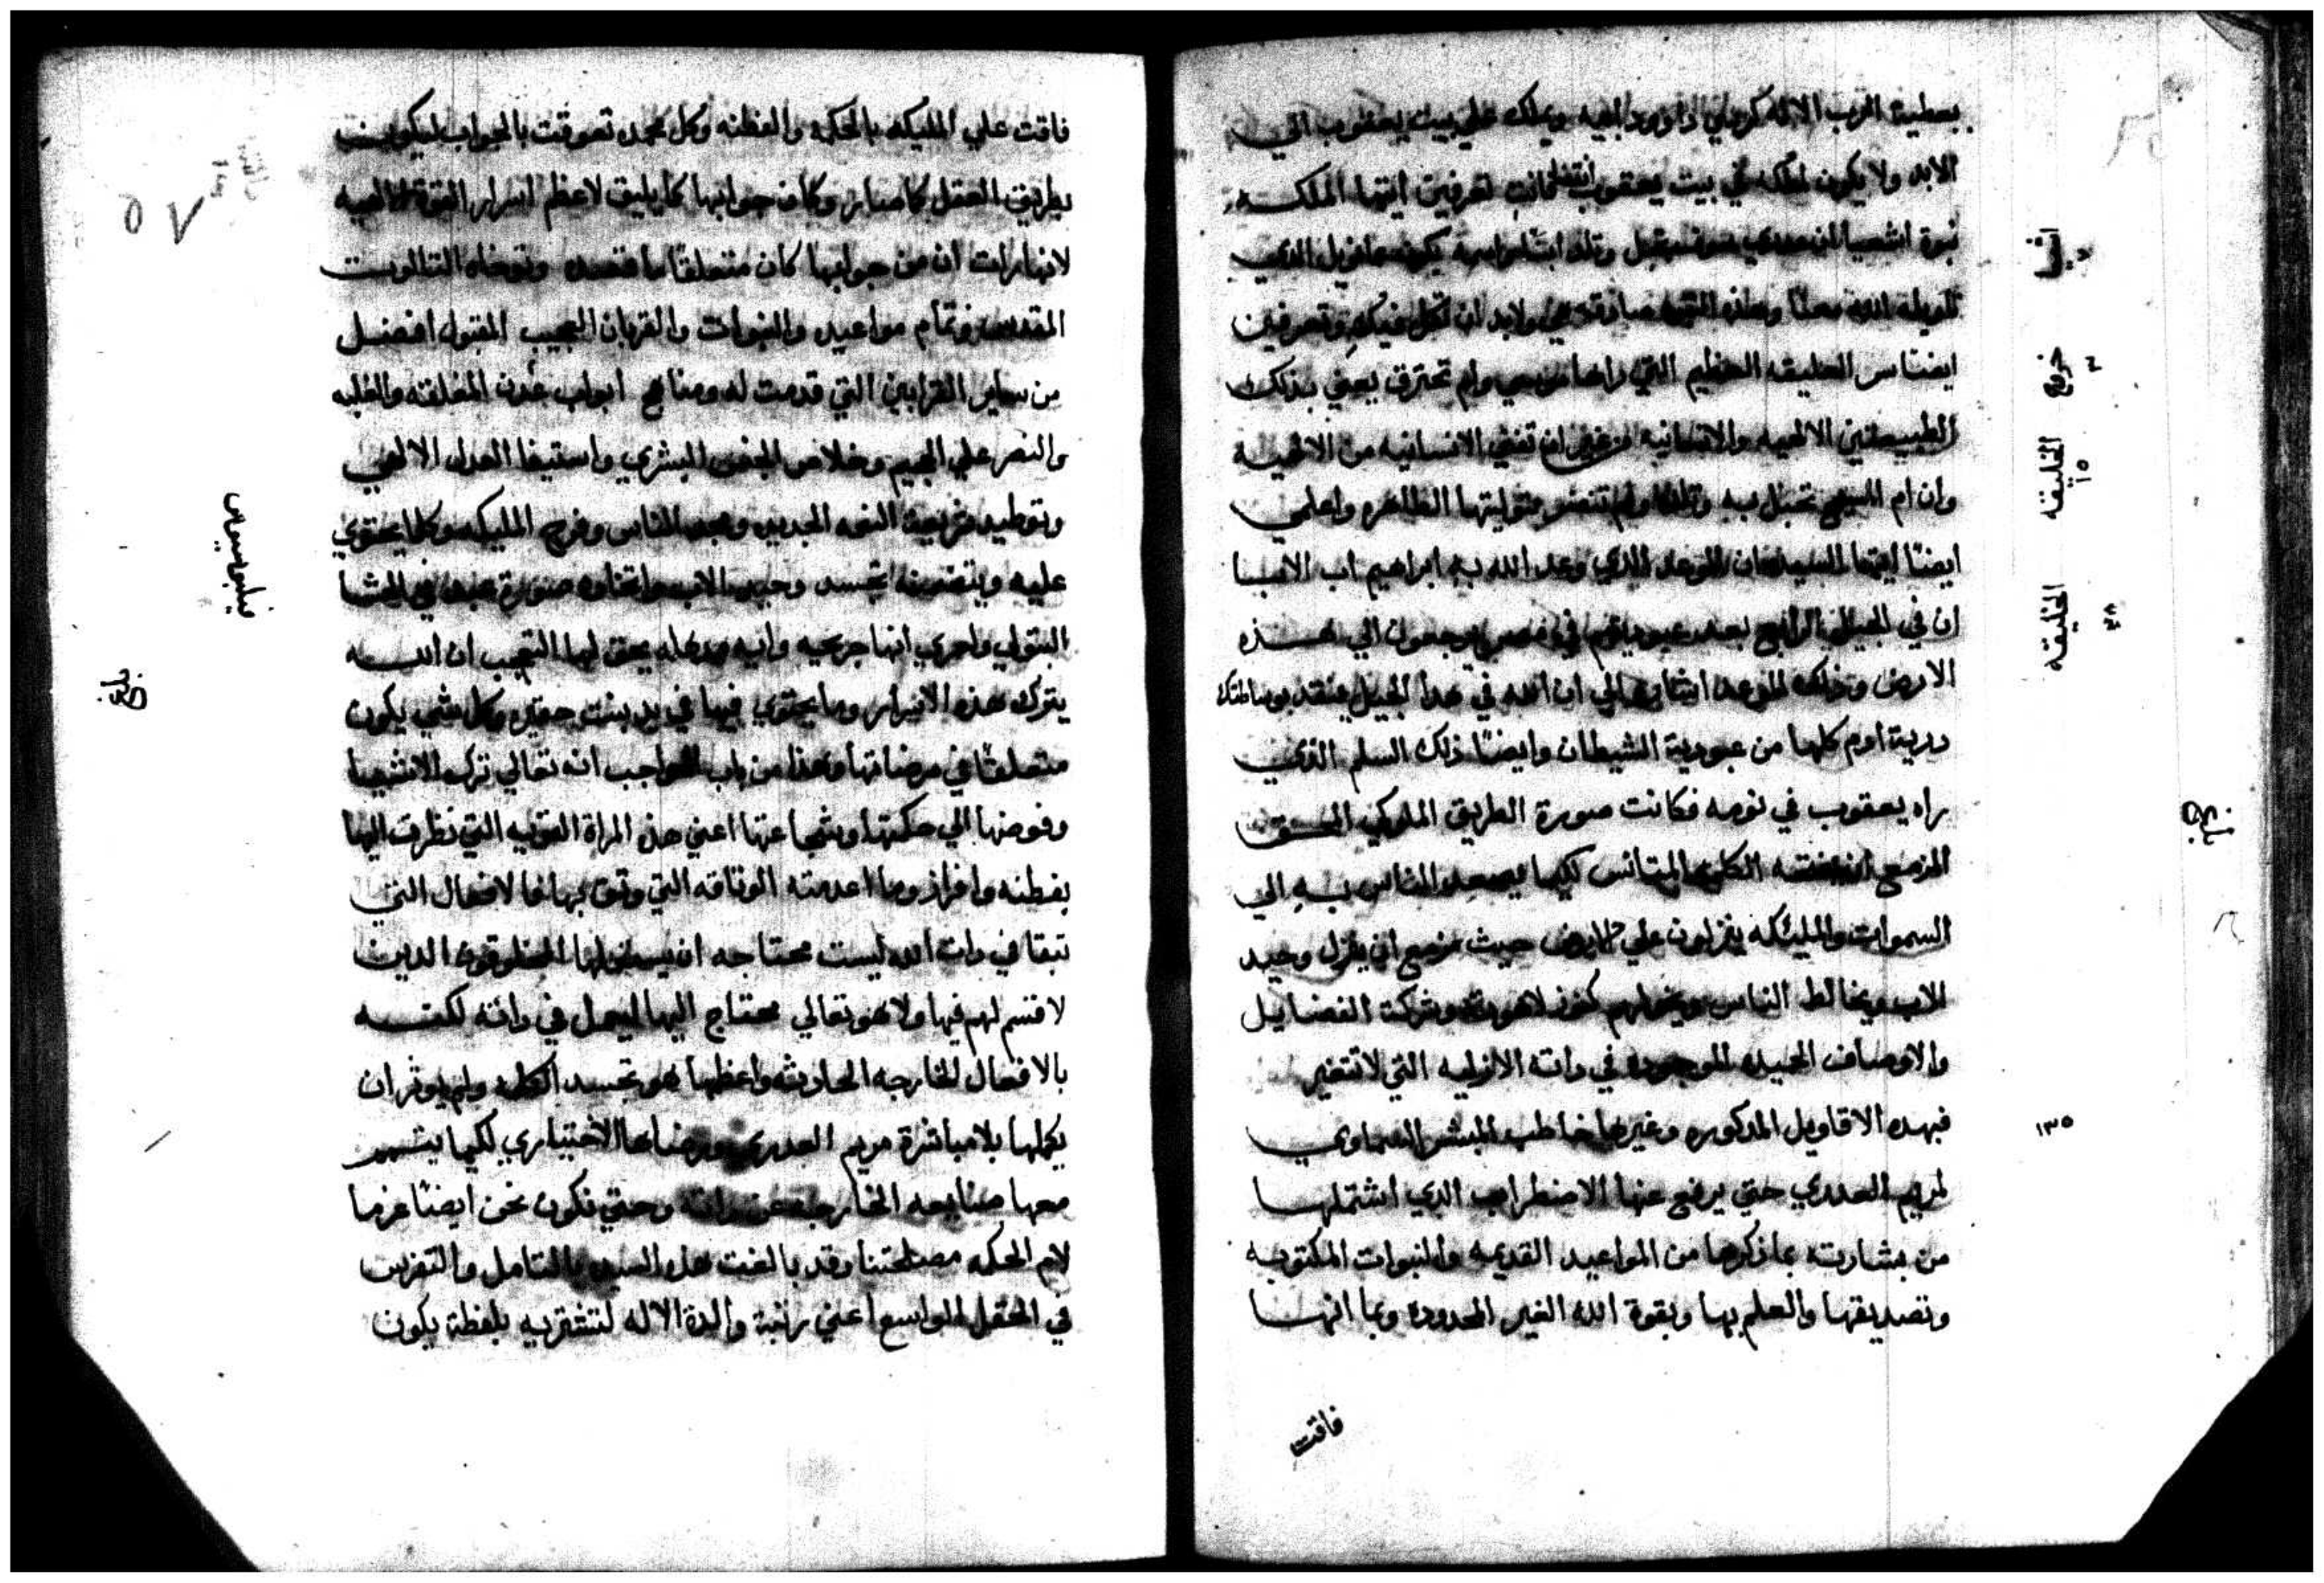 يعطيه الرب الاله كرسي داوود ابيه ويملك علي بيت يعقوب الي
الابد ولا يكون لملكه في بيت يعقوب انقضا انتي تعرفين ايتها الملكه
نبوة اشعيا ان عدري سوف تحبل وتلد ابنًا واسمه يكون عمانويل الذي
تاويله الله معنا وهذه النبوه صادقه هي ولابد ان تكمل فيكي وتعرفين
ايضًا سر العليقه العظيم التي راها موسي ولم تحترق يعني بذلك
الطبيعتين الالهيه والانسانيه من غير ان تفني الانسانيه من الالهيه
وان ام المسيح تحبل به وتلد ولم تنفسد بتوليتها الطاهره واعلمي
ايضًا ايتها السيده ان الموعد الذي وعد الله به ابراهيم اب الابا
ان في الجيل الرابع بعد عبوديتهم في مصر يرجعون الي هذه
الارض وذلك الموعد اشار الي ان الله في هذا الجيل ينقد بوساطتك
درية ادم كلها من عبودية الشيطان وايضًا ذلك السلم الذي
راه يعقوب في نومه فكانت صورة الطريق الملوكي الحق
المزمع ان يفتحه الكلمه المتانس لكيما يصعد الناس به الي
السموات والمليكه ينزلون علي الارض حيث مزمع ان ينزل وحيد
الاب ويخالط الناس ويخولهم كنوز لاهوته وشركت الفضايل
والاوصاف الحميده الموجوده في داته الازليه التي لا تتغير
فبهده الاقاويل المدكوره وغيرها خاطب المبشر السماوي
لمريم العدري حتي يرفع عنها الاضطراب الدي اشتملها
من بشارته بما ذكرها من المواعيد القديمه والنبوات المكتوبه
وتصديقها والعلم بها وبقوة الله الغير المحدوده وبما انها
فاقت
اشعيا
٧
خروج
٣
الخليقه
١٥
الخليقه
٢٨
١٣٥
فاقت علي المليكه بالحكمه والفطنه وكل مجد تعوقت بالجواب ليكون
بطريق العقل كما صار وكان جوابها كما يليق لاعظم اسرار القوة الالهيه
لانها رات ان من جوابها كان متعلقًا ما قصده وتوخاه التالوت
المقدس وتمام مواعيده والنبوات والقربان العجيب المقبول افضل
من ساير القرابين التي قدمت له ومفاتيح ابواب عدن المغلقه والغلبه
والنصر علي الجحيم وخلاص الجنس البشري واستيفا العدل الالهي
وتوطيد شريعة النعمه الجديده ومجد الناس وفرح المليكه وكلما يحتوي
عليه ويتضمنه تجسد وحيد الاب واتخاده صورة عبد في الحشا
البتولي واحري انها جريحيه وانيه ودهله يحق لها التعجب ان الله
يترك هذه الاسرار وما يحتوي فيها في يد بنت حقيره وكل شي يكون
متعلقًا في مرضاتها وهذا من باب الواجب انه تعالي ترك الاشيا
وفوضها الي حكمتها وشجاعتها اعني هذه المراة القويه التي نظرت اليها
بفطنه وافراز وما اعدمته الوثاقه التي وثق بها فالافعال التي
تبقا في دات الله ليست محتاجه ان يستعملها المخلوقون الدين
لا قسم لهم فيها ولا هو تعالي محتاج اليها ليعمل في داته لكنه
بالافعال الخارجه الحادثه واعظمها هو تجسد الكلمه ولم يوثر ان
يكملها بلا مباشرة مريم العدري ورضاها الاختياري لكيما يتمم
معها صنايعه الخارجه عن داته وحتي نكون نحن ايضًا غرما
لام الحكمه مصلحتنا وقد بالغت هذه السيده بالتامل والتفرس
في الحقل الواسع اعني رتبة والدة الاله لتشتريه بلفظة يكون
٥٧
فيليبسيوس